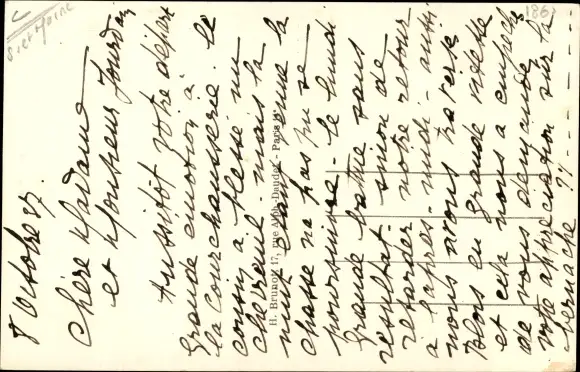 8 Octobre 37.
Chère Madame
et Monsieur Jourdain
Aussitôt votre départ
grande émotion à
la Courchausserie. Le
cousin a blessé un
chevreuil - mais la
nuit étant venue la
chasse na pas pu se
poursuivre - le lundi
grande battue sans
résultat - sinon de
retarder notre retour
à l'après-midi - aussi
nous avons traversé
Blois en grande vitesse
et cela nous a empêché
de vous demander
votre appréciation sur la
bernache ??
H. Brunot 17, rue Alph. Daudet - Paris
Loir et Cher